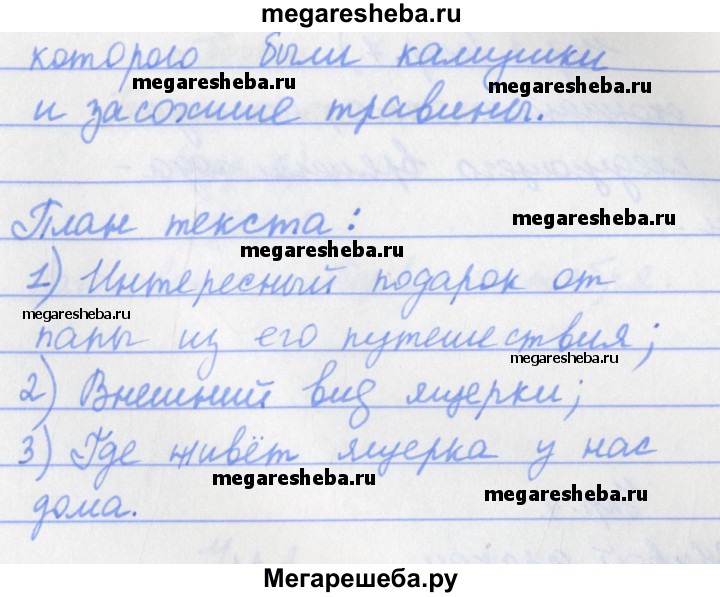 megaresheba.ru
которого были камушки
megaresheba.ru
megaresheba.ru
и засохшие травины.
megaresheba.ru
План текста:
megaresheba.ru
megaresheba.ru
1) Интересный подарок от
megaresheba.ru
папы из его путешествия;
megaresheba.ru
2) Внешний вид ящерки;
3) Где живёт ящерка у нас
megaresheba.ru
megaresheba.ru
дома.
Мегарешеба.ру